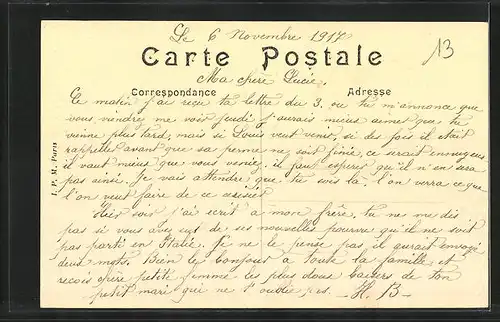 Le 6 Novembre 1917
13
Carte Postale
Ma chère Lucie,
Correspondance
Adresse
Ce matin j'ai reçu ta lettre du 3, ou tu m'annonce que
vous viendrez me voir jeudi j'aurais mieux aimer que tu
vienne plus tard, mais si Louis veut venir, si des fois il était
rappeller avant que sa perme ne soit finie, ce serait ennuyeux
il vaut mieux que vous veniez. il faut espérer qu'il n'en sera
pas ainsi. Je vais attendre que tu sois là. l'on verra ce que
l'on veut faire de ce
Hier soir j'ai écrit a mon frère, tu ne me dis
pas si vous avez eut de ses nouvelles pourvu qu'il ne soit
pas parti en Italie. Je ne le pense pas il aurait envoyé
deux mots. Bien le bonjour à toute la famille et
reçois chère petite femme les plus doux baisers de ton
petit mari qui ne t'oublie pas. - H. B -
I. P. M. Paris